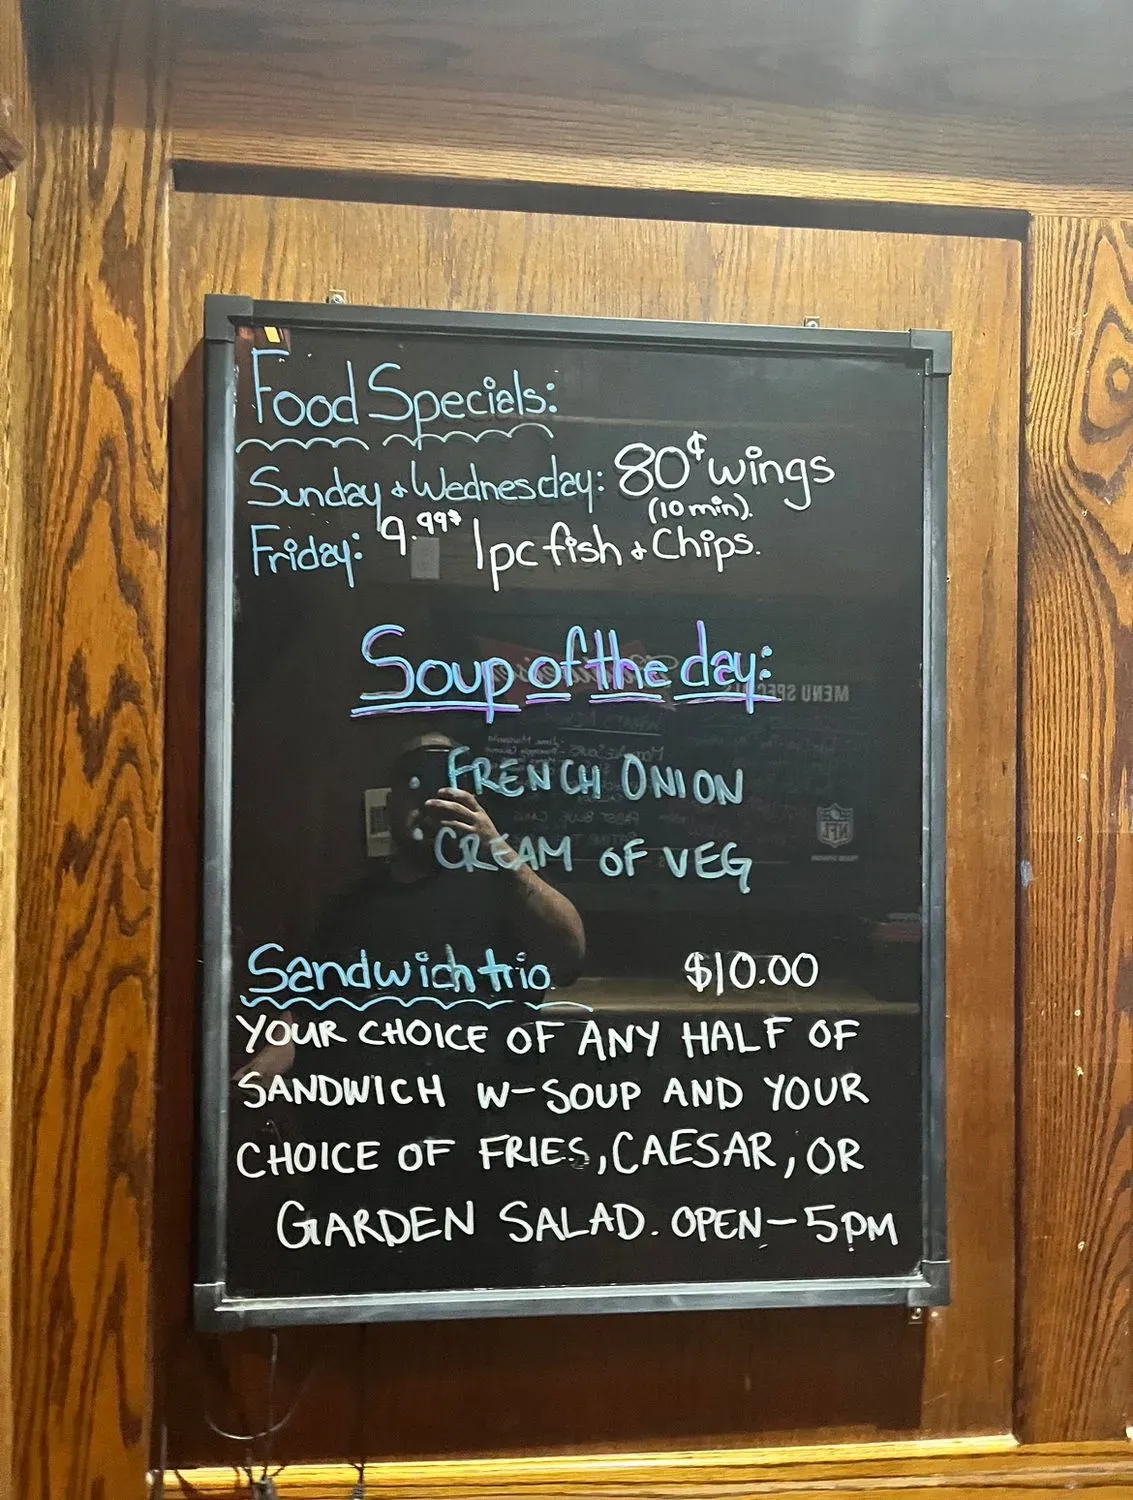 Food Specials:
Sunday & Wednesday: 80¢ wings
(10 min).
Friday: 9.99$ 1pc fish & Chips.
Soup of the day:
• FRENCH ONION
• CREAM OF VEG
Sandwich trio. $10.00
YOUR CHOICE OF ANY HALF OF
SANDWICH W-SOUP AND YOUR
CHOICE OF FRIES, CAESAR, OR
GARDEN SALAD. OPEN-5PM
MENU SPECIALS
NFL